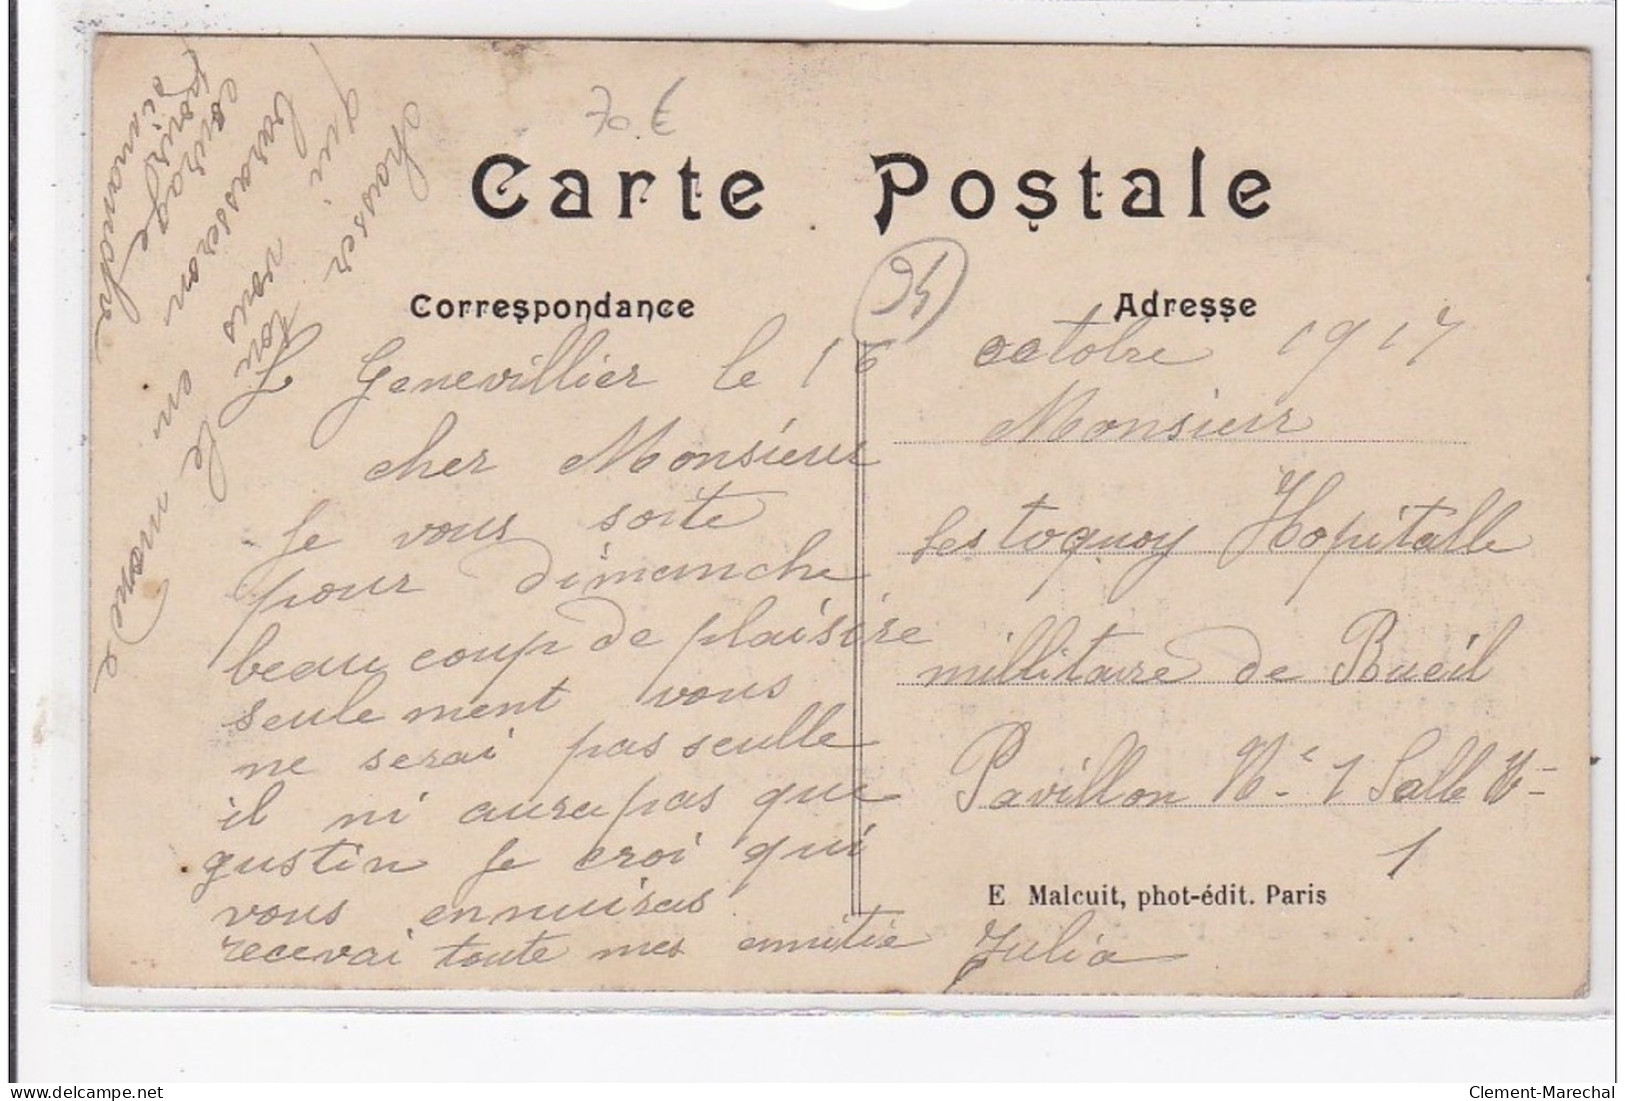 70 €
Carte Postale
Correspondance
Adresse
94
Genevillier le 16 octobre 1917
cher Monsieur
Je vous soite
pour dimanche
beaucoup de plaisire
seulement vous
ne serai pas seulle
il ni aura pas que
gustin je croi qui
vous ennuiras
recevai toute mes amitié
Julia
Monsieur
Lestoquoy Hopitalle
millitaire de Rueil
Pavillon N° 1 Salle N°
1
E Malcuit, phot-édit. Paris
courage
pour
dimanche
qui vous
en le monde
Clement-Marechal